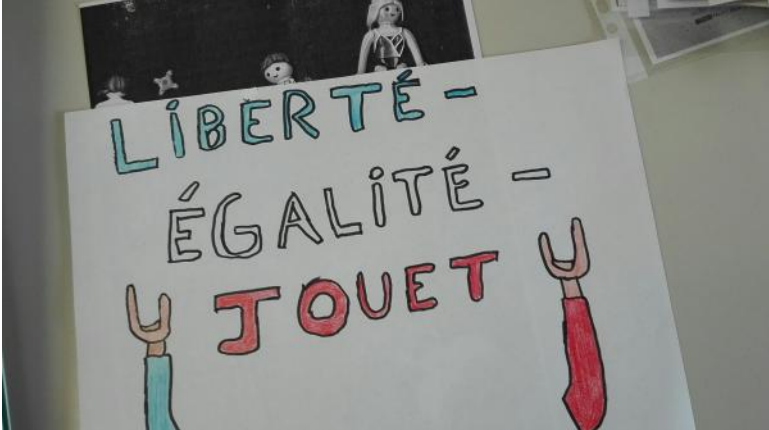 LiBERTÉ-
ÉGALiTÉ-
JOUET